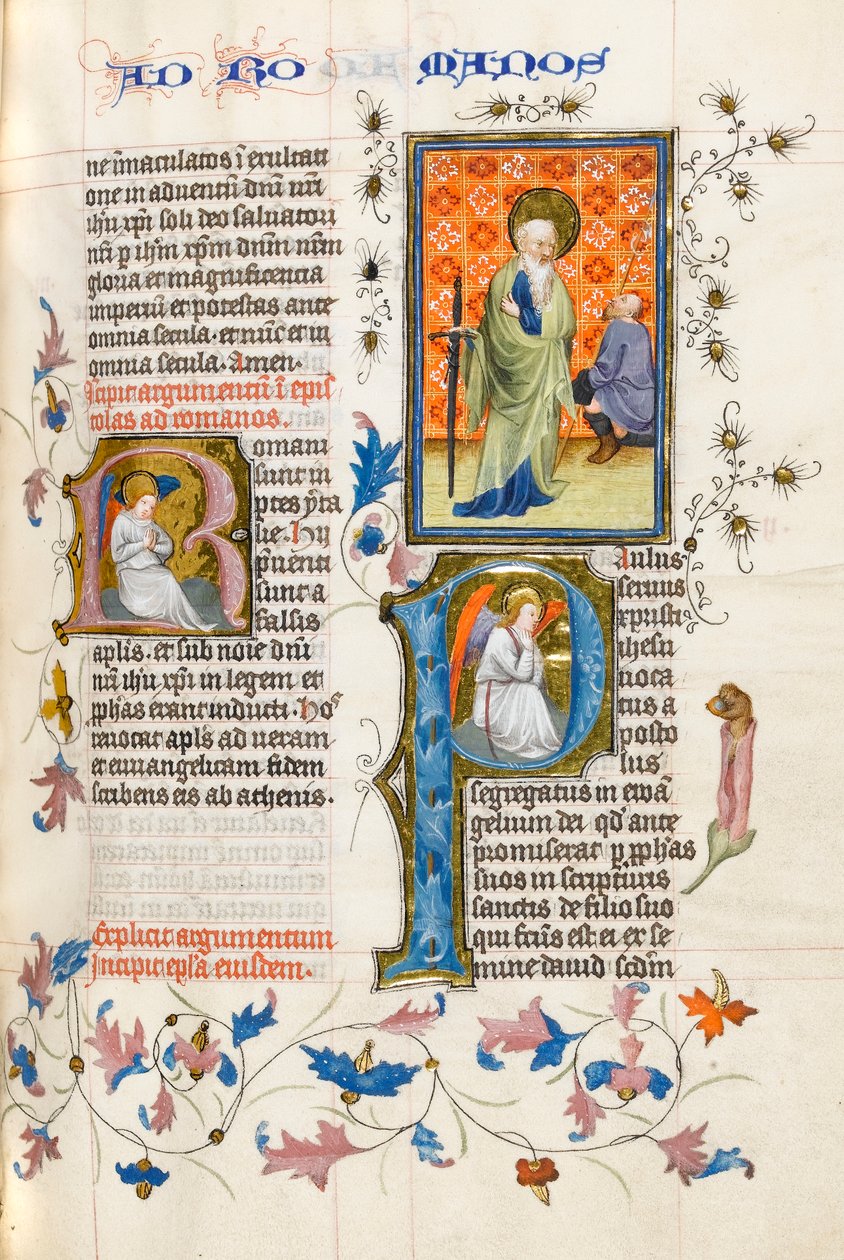 AD RO MANOS
ne īmaculatos ī exultati
one in adventū dnī nrī
ihū xpī soli deo salvatori
nrī p ihm̄ xpm̄ dnūm nrm̄
gloria et magnificencia
imperiū et potestas ante
omnia secula. et nūc et in
omnia secula. Amen.
Īcipit argumentū ī epis
tolas ad romanos.
Romani
sunt in
ptes yta
lie. Hii
pveneti
sunt a
falsis
aplīs. et sub noīe dnī
nrī ihū xpī in legem et
pphās erant inducti. Hos
revocat aplūs ad veram
et ewangelicam fidem
scribens eis ab athenis.
Explicit argumentum
Incipit eplā eiusdem.
Paulus
servus
xpristi
ihesu
voca
tus a
posto
lus
segregatus in ewā
gelium dei qd̄ ante
promiserat p pphās
suos in scripturis
sanctis de filio suo
qui fcūs est ei ex se
mine david scdm̄